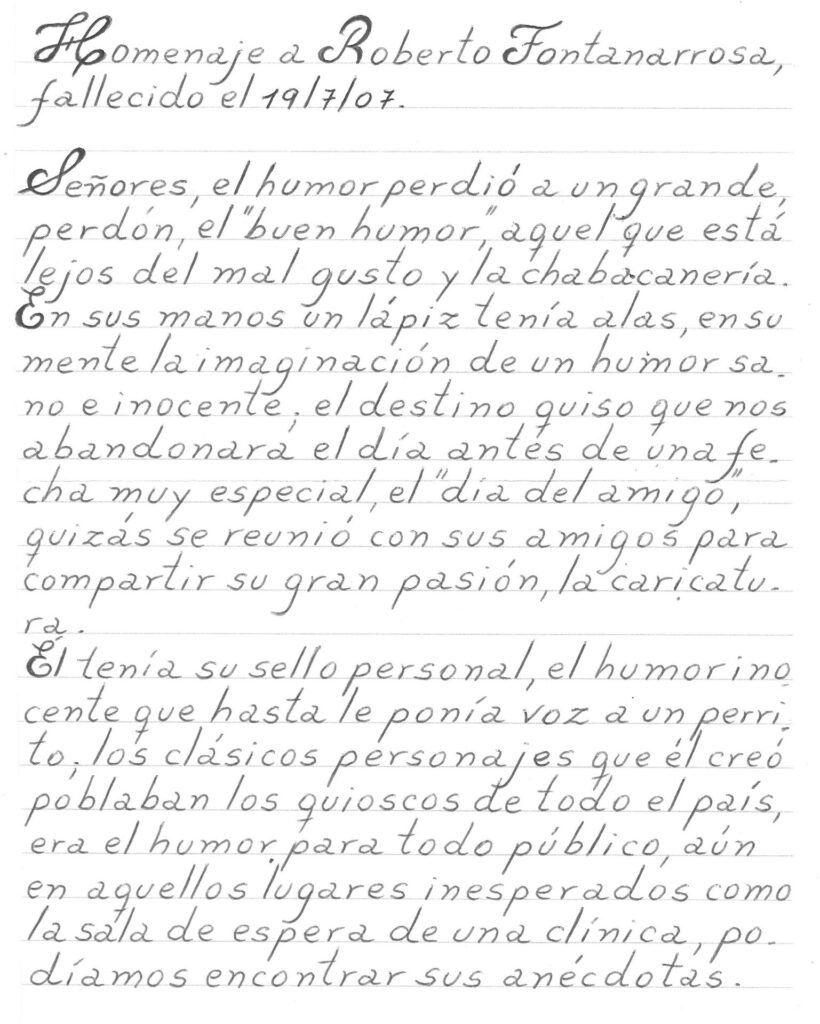 Homenaje a Roberto Fontanarrosa,
fallecido el 19/7/07.
Señores, el humor perdió a un grande,
perdón, el "buen humor," aquel que está
lejos del mal gusto y la chabacanería.
En sus manos un lápiz tenía alas, en su
mente la imaginación de un humor sa-
no e inocente; el destino quiso que nos
abandonará el día antes de una fe-
cha muy especial, el "día del amigo",
quizás se reunió con sus amigos para
compartir su gran pasión, la caricatu-
ra.
Él tenía su sello personal, el humor ino
cente que hasta le ponía voz a un perri-
to; los clásicos personajes que él creó
poblaban los quioscos de todo el país,
era el humor para todo público, aún
en aquellos lugares inesperados como
la sala de espera de una clínica, po-
díamos encontrar sus anécdotas.